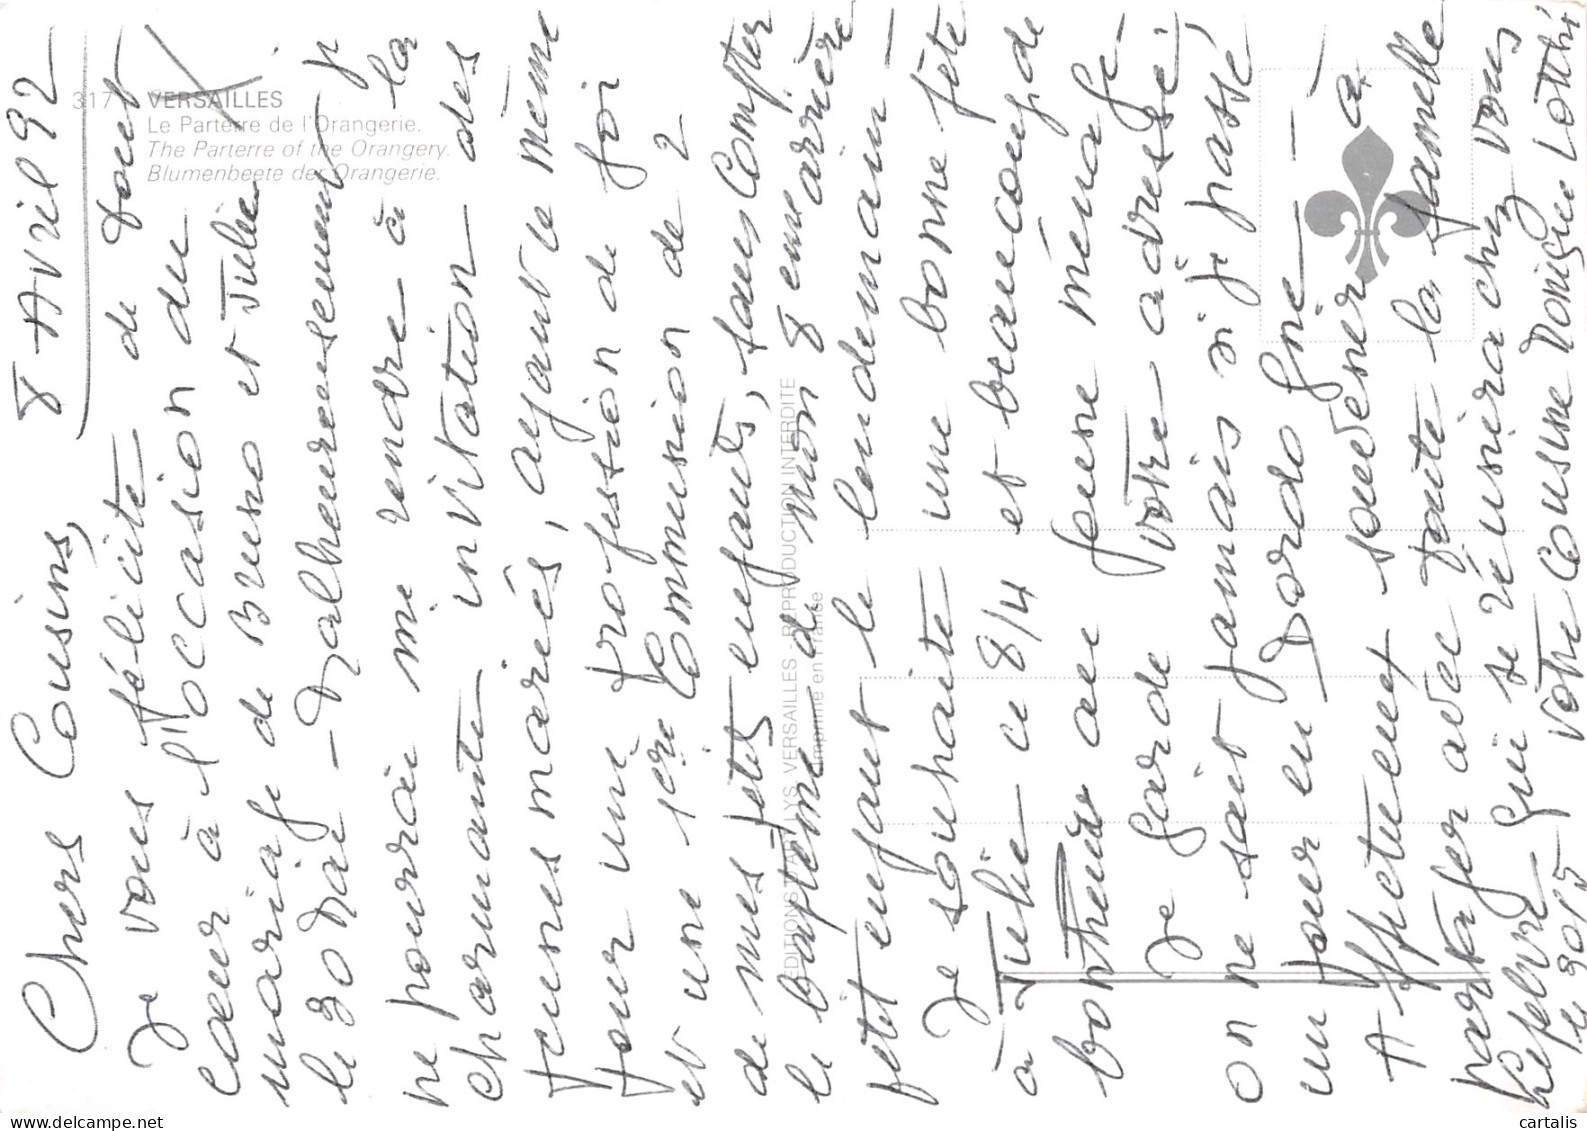 8 Avril 92
Chers Cousins,
Je vous félicite de tout
cœur à l'occasion du
mariage de Bruno et Julie
le 30 Mai - Malheureusement je
ne pourrai me rendre à la
charmante invitation des
jeunes mariés, ayant le même
jour une profession de foi
et une 1ere Communion de 2
de mes petits enfants, sans compter
le baptême de mon 8 eme arrière
petit enfant le lendemain -
Je souhaite une bonne fête
à Julie ce 8/4 et beaucoup de
bonheur au jeune ménage -
Je garde votre adresse.
on ne sait jamais si je passe
un jour en Dordogne -
Affectueux souvenir à
partager avec toute la famille
qui se réunira chez vous
le 30/5 votre Cousine Monique
Lefebvre
317
VERSAILLES
Le Parterre de l'Orangerie.
The Parterre of the Orangery.
Blumenbeete der Orangerie.
EDITIONS D'ART LYS VERSAILLES - REPRODUCTION INTERDITE
Imprimé en France
cartalis